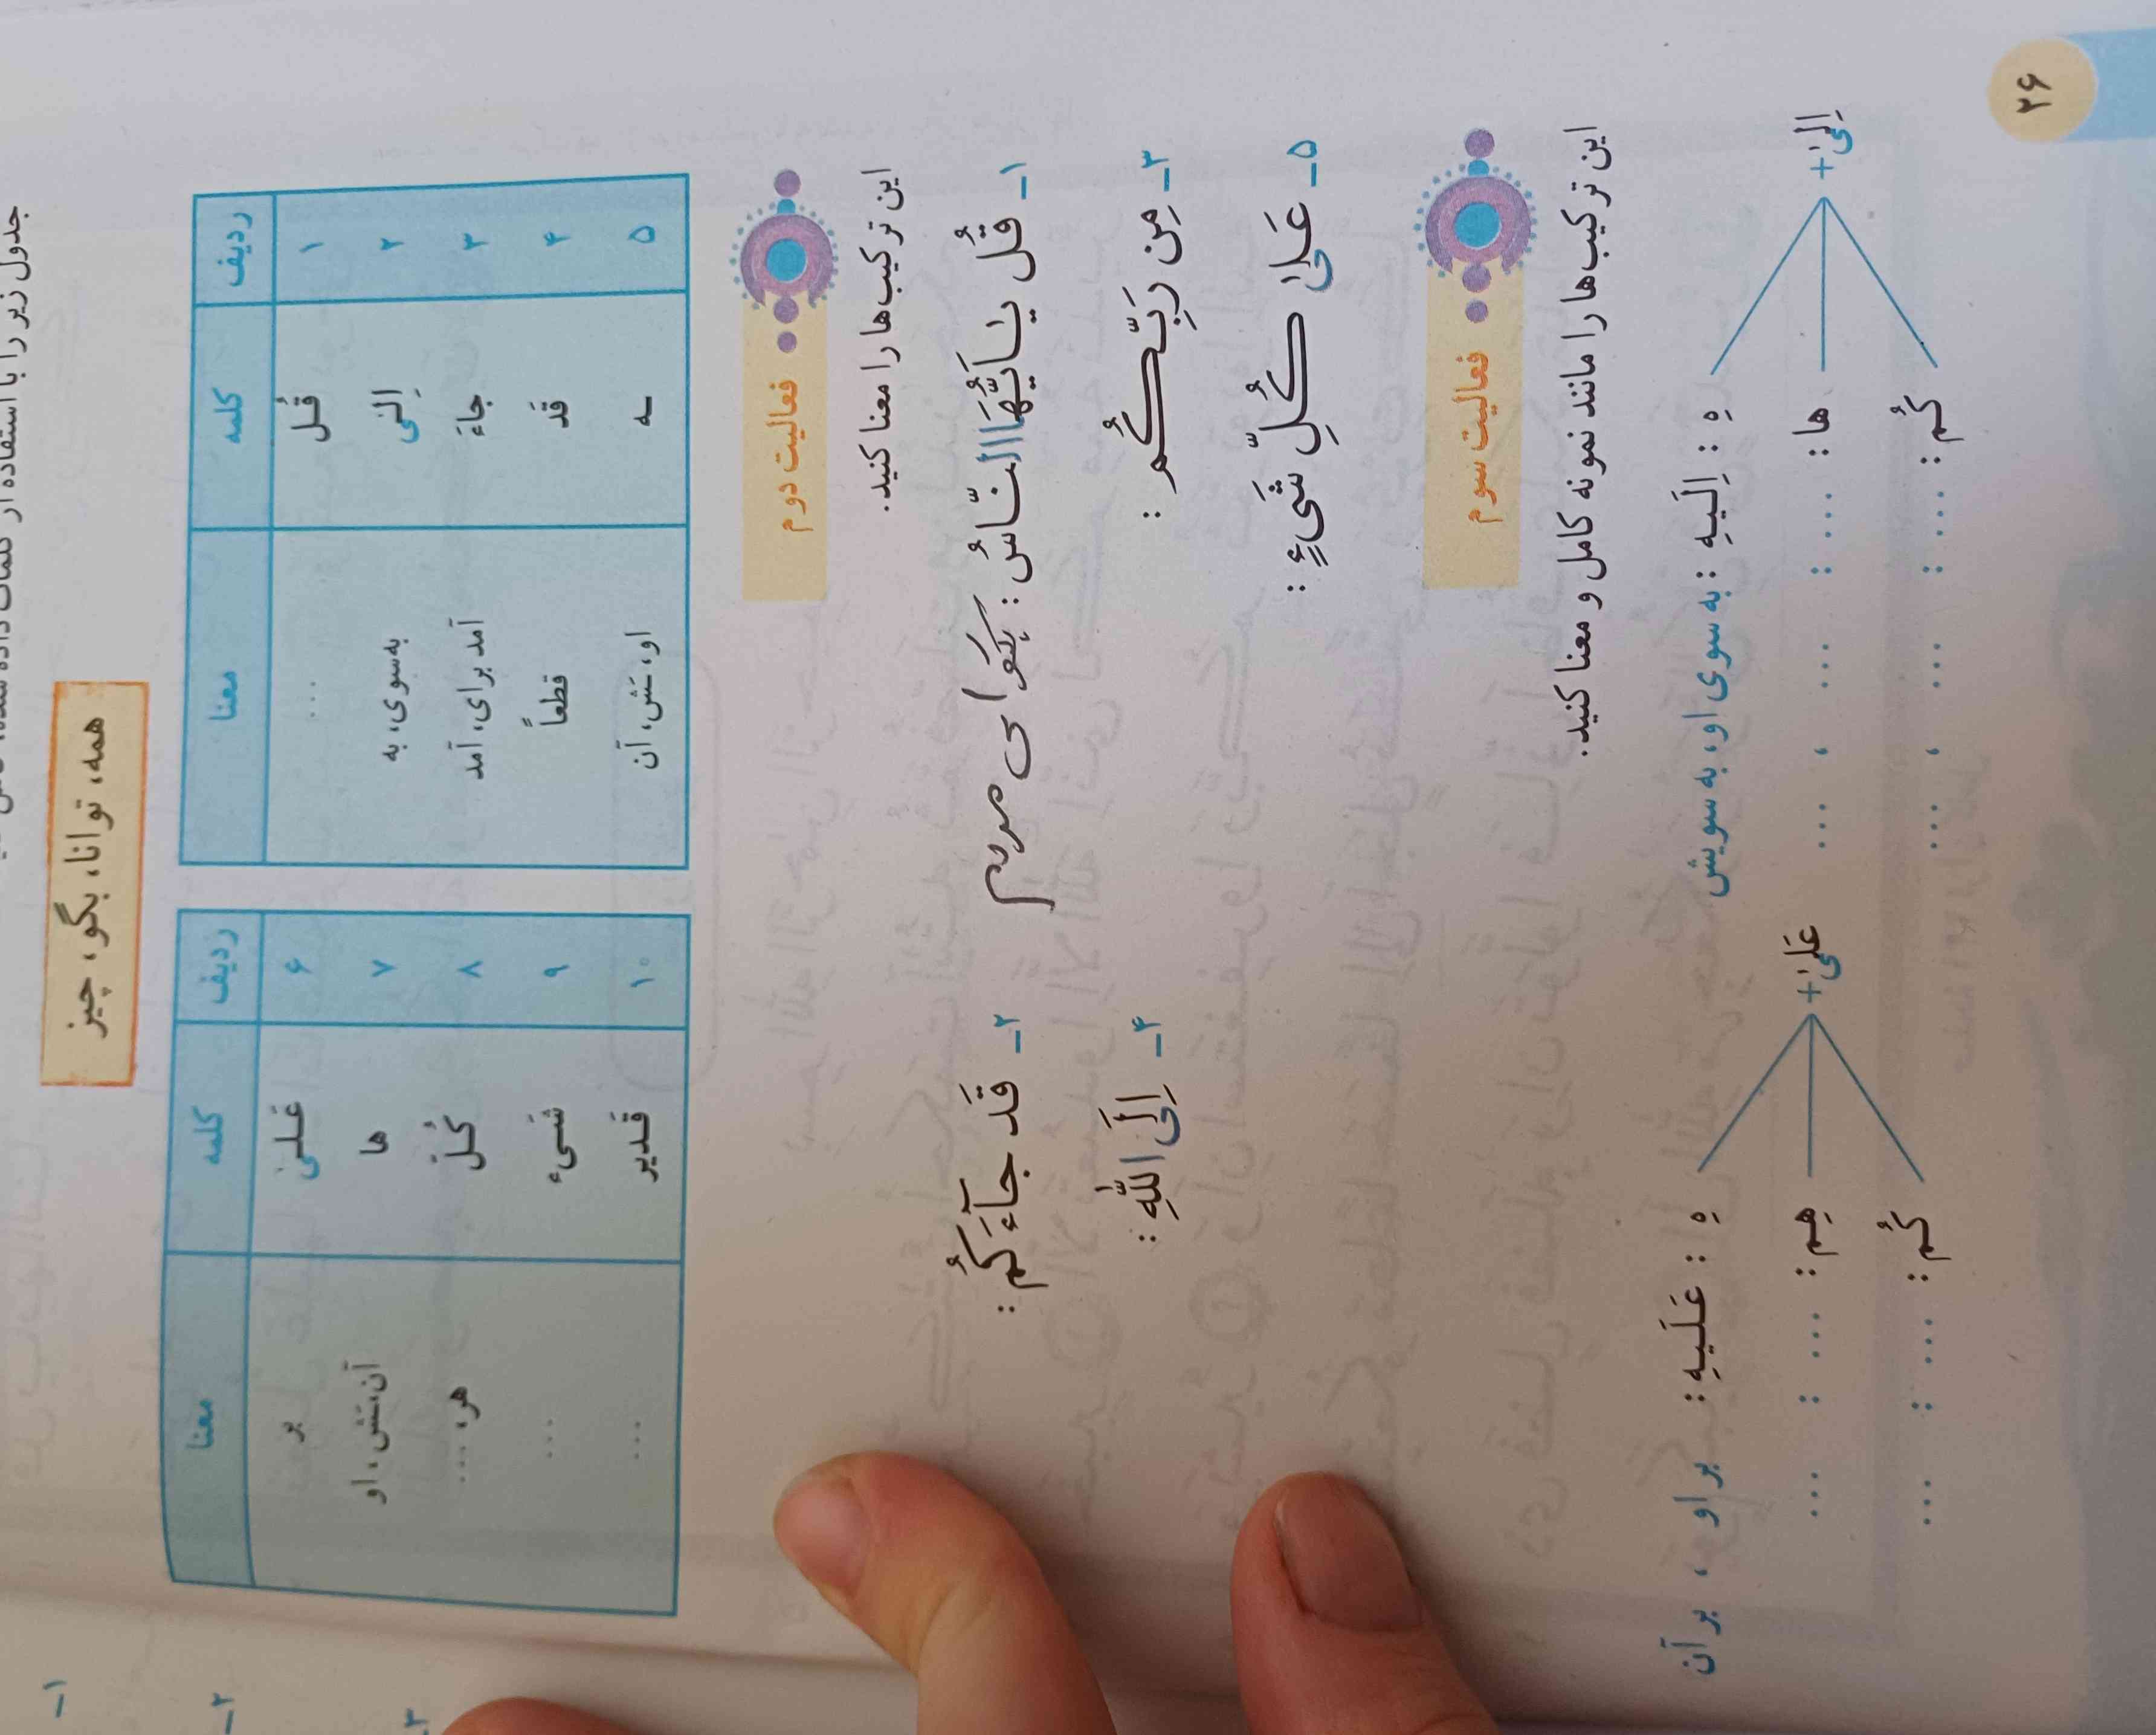 جدول زیر را با استفاده از کلمات داده شده،
همه، توانا، بگو، چیز
ردیف کلمه معنا ردیف کلمه معنا
۱ قُل ... ۶ عَلیٰ بر
۲ اِلیٰ به‌سوی، به ۷ ها آن، ـَش، او
۳ جاءَ آمد برای، آمد ۸ کُلّ هر، ...
۴ قَد قطعاً ۹ شَیء ...
۵ ـه او، ـَش، آن ۱۰ قَدیر ...
فعالیت دوم
این ترکیب‌ها را معنا کنید.
۱ـ قُل یـٰاَیُّهَا النّاسُ : بگو ای مردم ۲ـ قَد جآءَکُم :
۳ـ مِن رَبِّکُم : ۴ـ اِلَی اللّٰهِ :
۵ـ عَلیٰ کُلِّ شَیءٍ :
فعالیت سوم
این ترکیب‌ها را مانند نمونه کامل و معنا کنید.
هِ : اِلَیهِ : به سوی او، به سویش هِ : عَلَیهِ : بر او ، بر آن
اِلیٰ + ها : .... : ... ، ... عَلیٰ + هِم : .... : ...
کُم : .... : ... ، ... کُم : .... : ...
۲۶
۱ـ
۲ـ
۳ـ